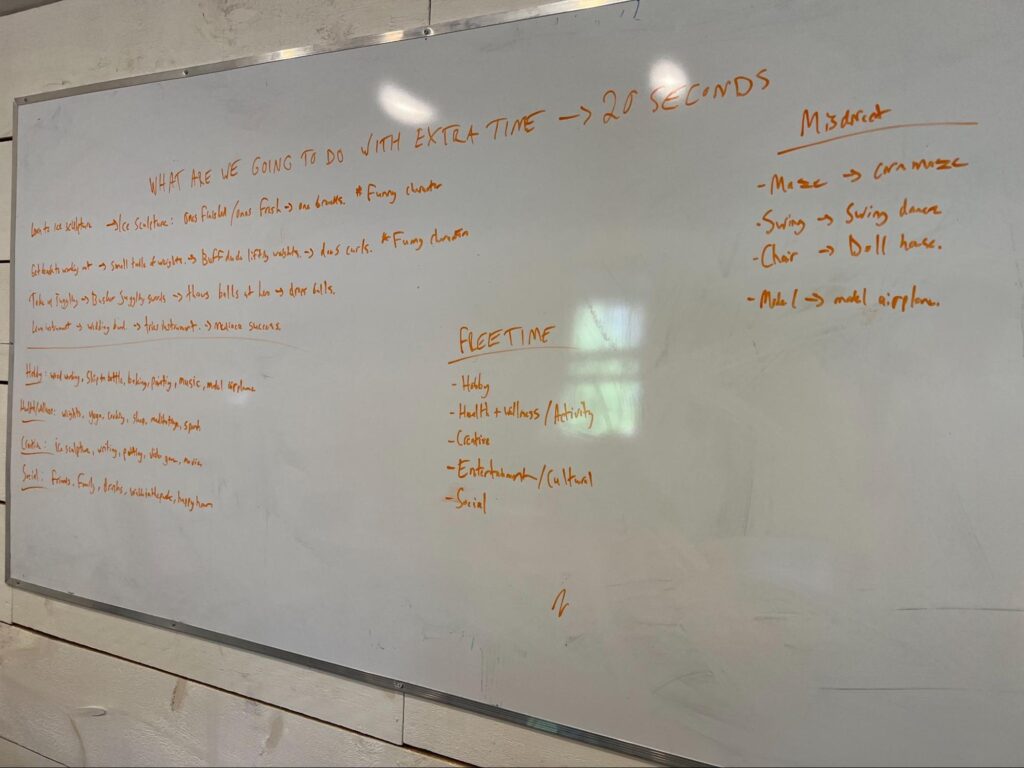 WHAT ARE WE GOING TO DO WITH EXTRA TIME → 20 SECONDS
Learn to ice sculpture → Ice Sculpture: ones finished / ones fresh → one breaks. * Funny character
Get back to working out → small talk of weights. → Buff dude lifting weights. → does curls. * Funny character
Take up Juggling → Busker Juggling swords → throws balls at him → drops balls.
Learn instrument → wedding band. → tries instrument. → mediocre success.
Hobby: wood working, Ship in bottle, baking, painting, music, model airplane
Health/wellness: weights, yoga, cooking, sleep, meditation, sports
Creative: Ice sculpture, writing, painting, video game, movies
Social: Friends, Family, drinks, happy hour
FREETIME
- Hobby
- Health + Wellness / Activity
- Creative
- Entertainment / Cultural
- Social
Misdirect
- Maze → corn maze
- Swing → Swing dance
- Chair → Doll house.
- Model → model airplane.